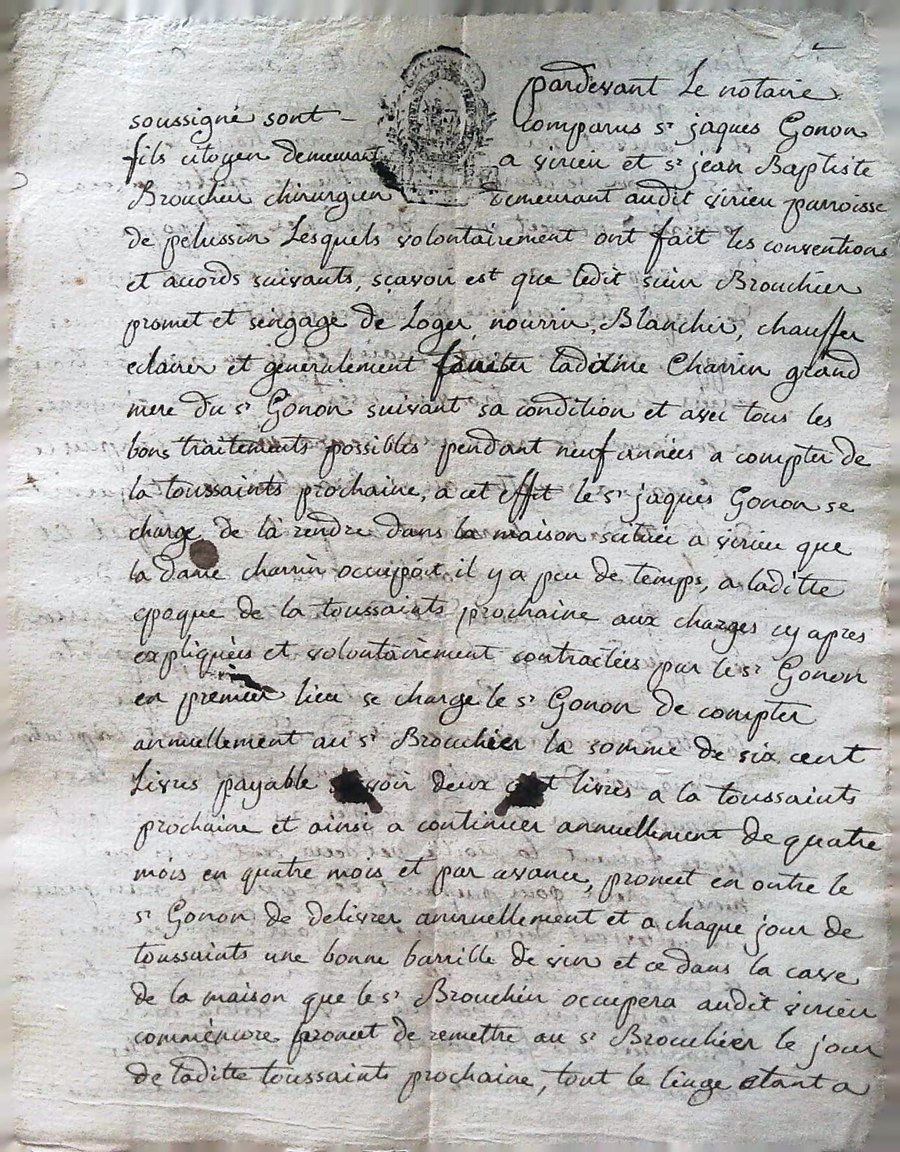 pardevant Le notaire
soussigné sont comparus sr jaques Gonon
fils citoyen demeurant a virieu et sr jean Baptiste
Brouchier chirurgien demeurant audit virieu parroisse
de pelussin Lesquels volontairement ont fait les conventions
et acords suivants, sçavoir est que ledit sieur Brouchier
promet et sengage de Loger, nourrir, Blanchir, chauffer
eclairer et generalement ladame Charrin grand
mere du sr Gonon suivant sa condition et avec tous les
bons traitements possibles pendant neuf années a compter de
la toussaints prochaine, a cet effet le sr jaques Gonon se
charge de la rendre dans la maison scituée a virieu que
la dame charrin occupoit il y a peu de temps, a laditte
epoque de la toussaints prochaine aux charges cy apres
expliquées et volontairement contractées par le sr Gonon
en premier lieu se charge le sr Gonon de compter
annuellement au sr Brouchier la somme de six cent
Livres payable deux livres a la toussaints
prochaine et ainsi a continuer annuellement de quatre
mois en quatre mois et par avance, promet en outre le
sr Gonon de delivrer annuellement et a chaque jour de
toussaints une bonne barrille de vin et ce dans la cave
de la maison que le sr Brouchier occupera audit virieu
promet de remettre au sr Brouchier le jour
de laditte toussaints prochaine, tout le linge etant a